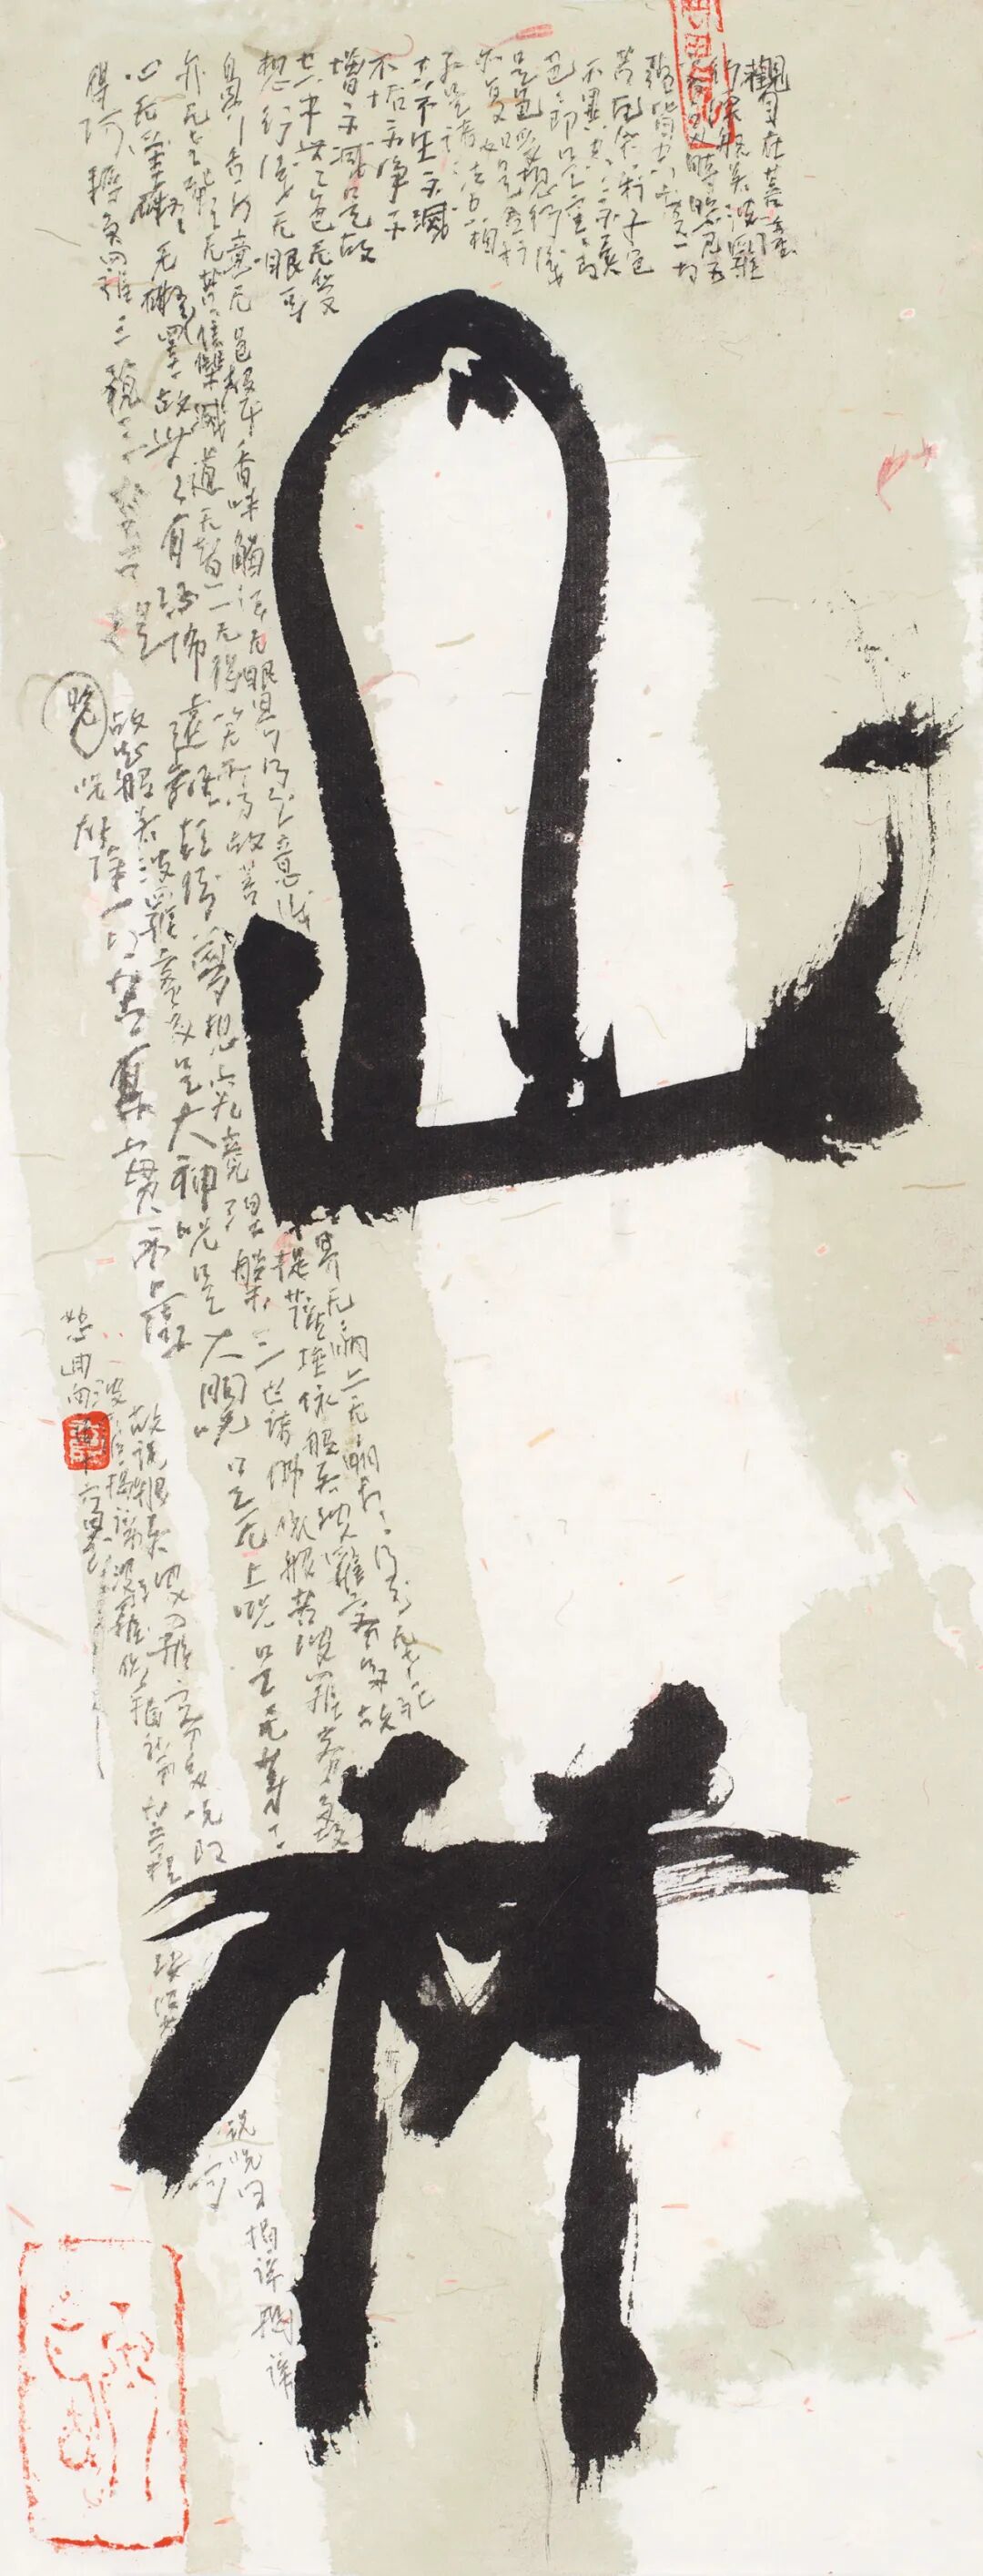 山林
觀自在菩薩
行深般若波羅
蜜多時照見五
蘊皆空度一切
苦厄舍利子色
不異空空不異
色色即是空空即
是色受想行識
亦復如是舍利
子是諸法空相
不生不滅
不垢不淨不
增不減是故
空中无色无受
想行識无眼耳
鼻舌身意无色聲香味觸法无眼界乃至意識界无无明亦无无明盡乃至无老死
亦无老死盡无苦集滅道无智亦无得以无所得故菩提薩埵依般若波羅蜜多故
心无罣礙无罣礙故无有恐怖遠離顛倒夢想究竟涅槃三世諸佛依般若波羅蜜多故
得阿耨多羅三藐三菩提
故知般若波羅蜜多是大神咒是大明咒是无上咒是无等等
咒能除一切苦真實不虛
故說般若波羅蜜多咒即說咒曰揭諦揭諦
波羅揭諦波羅僧揭諦菩提